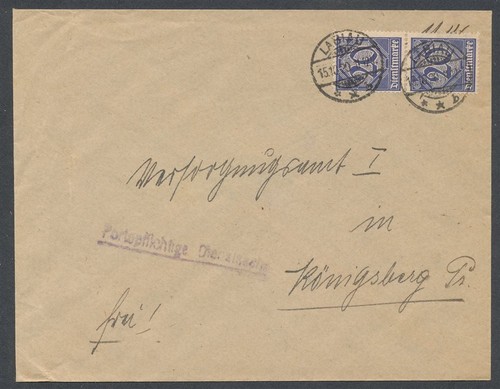 LABIAU
15.12.21
* * b
20
Dienstmarke
20
Dienstmarke
LABIAU
* * b
Versorgungsamt I
in
Portopflichtige Dienstsache
Königsberg Pr.
frei!